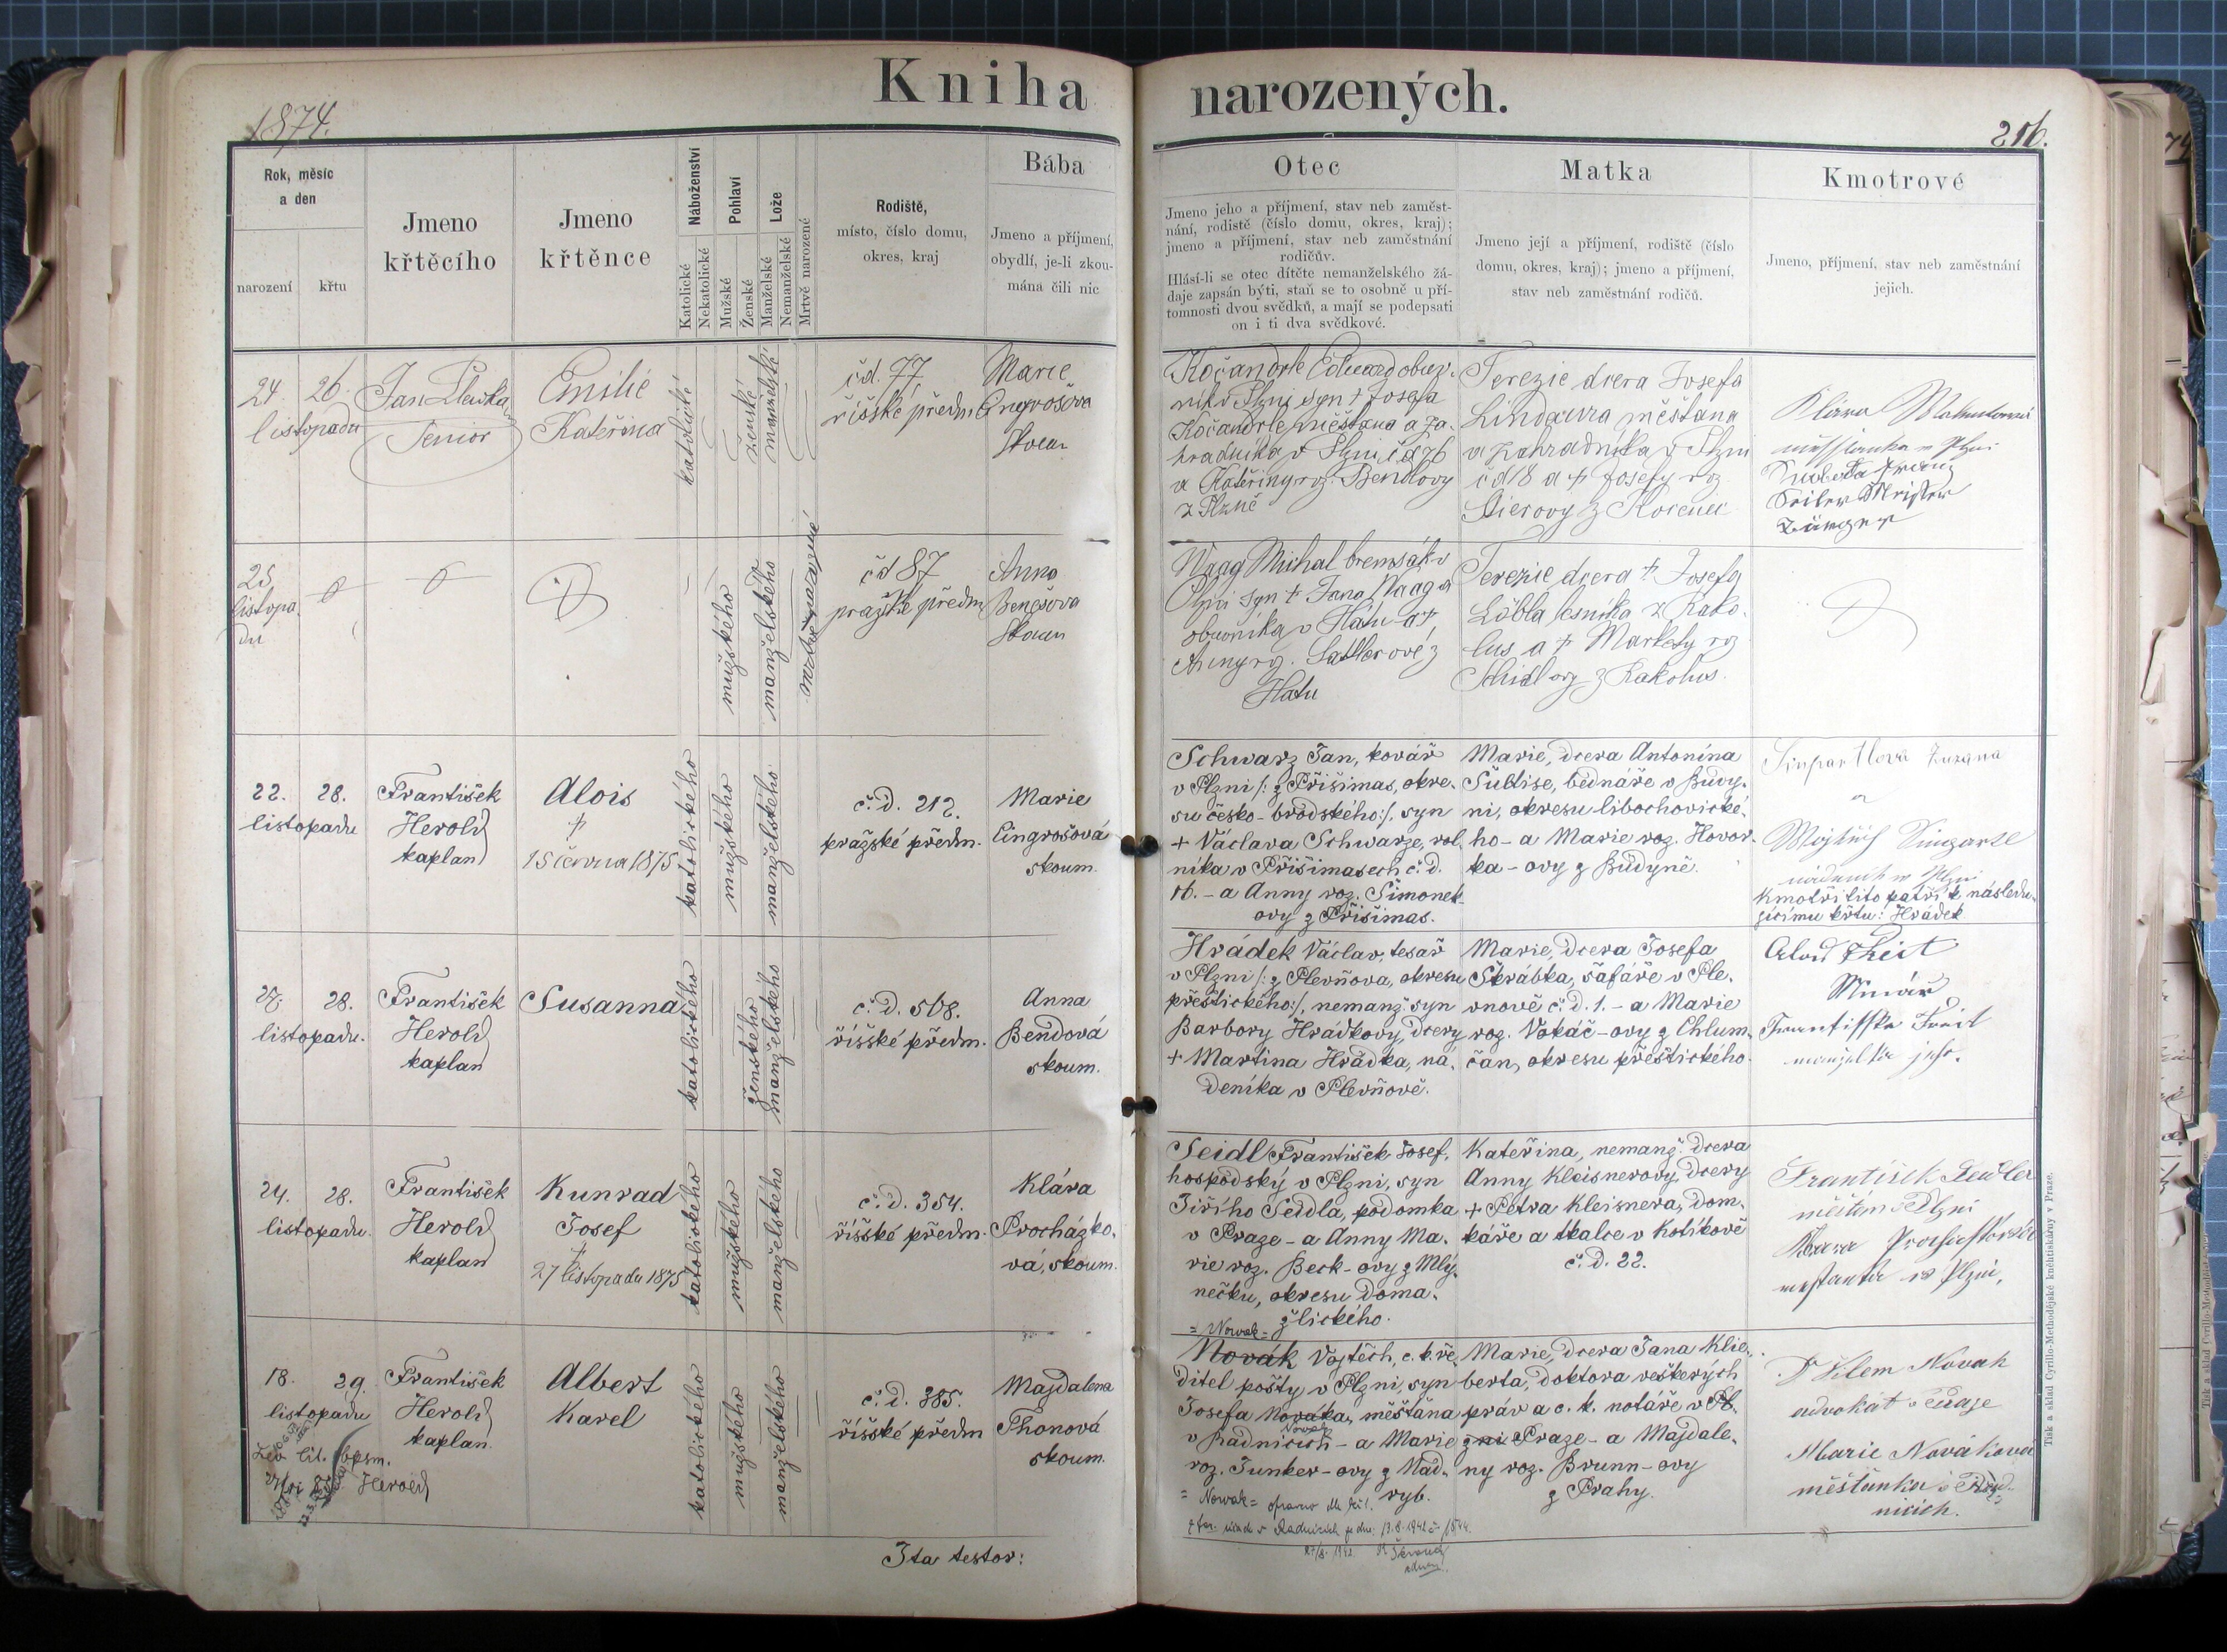 1874.
Kniha narozených.
216.
Rok, měsíc
a den
narození
křtu
Jmeno
křtěcího
Jmeno
křtěnce
Náboženství
Katolické
Nekatolické
Pohlaví
Mužské
Ženské
Lože
Manželské
Nemanželské
Mrtvě narozené
Rodiště,
místo, číslo domu,
okres, kraj
Bába
Jmeno a příjmení,
obydlí, je-li zkou-
mána čili nic
Otec
Jmeno jeho a příjmení, stav neb zaměst-
nání, rodistě (číslo domu, okres, kraj);
jmeno a příjmení, stav neb zaměstnání
rodičův.
Hlásí-li se otec dítěte nemanželského žá-
daje zapsán býti, staň se to osobně u pří-
tomnosti dvou svědků, a mají se podepsati
on i ti dva svědkové.
Matka
Jmeno její a příjmení, rodiště (číslo
domu, okres, kraj); jmeno a příjmení,
stav neb zaměstnání rodičů.
Kmotrové
Jmeno, příjmení, stav neb zaměstnání
jejich.
24. 26.
listopadu
Jan
Senior
Emilie
Kateřina
katolické
ženské
manželské
čd. 77
říšské předm
Marie
Skoum
Kočandrle Eduard obuv.
ník v Plzni syn + Josefa
Kočandrle měšťana a za.
hradníka v Plzni čd 76
a Kateřiny roz. Bendovy
z Plzně
Terezie dcera Josefa
Lindaura měšťana
a zahradníka v Plzni
čd 18 a + Josefy roz
z
Klára
v Plzni
Seiler Meister
Bürger
25
listopa.
du
mužského
manželského
mrtvě narozené
čd 87
pražské předm
Anna
Benešova
Skoum
Waag Michal bremsák v
Plzni syn + Jana Waaga
obuvníka v Flatu a +
Anny roz. Sattlerové z
Flatu
Terezie dcera + Josefa
Löbla lesníka z Kako.
lus a + Markety roz
Schidlovy z Kakolus.
22. 28.
listopadu
František
Herold
kaplan
Alois
+
15 června 1875
katolického
mužského
manželského
č. d. 212.
pražské předm.
Marie
Eingrošová
skoum.
Schwarz Jan, kovář
v Plzni /: z Přišimas, okre.
su česko-brodského :/, syn
+ Václava Schwarze, rol.
níka v Přišimasech č. d.
16. - a Anny roz. Šimonek
ovy z Přišimas.
Marie, dcera Antonína
bednáře v Budy.
ni, okresu libochovické.
ho - a Marie roz. Hovor.
ka - ovy z Budyně.
Zuzana
a
v Plzni
Kmotři tito patří k následu.
jícímu křtu: Hrádek
27. 28.
listopadu.
František
Herold
kaplan
Susanna
katolického
ženského
manželského
č. d. 508.
říšské předm.
Anna
Bendová
skoum.
Hrádek Václav, tesař
v Plzni /: z Plevňova, okresu
přeštického :/, nemanž. syn
Barbory Hrádkovy, dcery
+ Martina Hrádka, ná.
deníka v Plevňově.
Marie, dcera Josefa
Škrábka, šafáře v Ple.
vnově č. d. 1. - a Marie
roz. Vokáč - ovy z Chlum.
čan, okresu přeštického.
manželka jeho.
24. 28.
listopadu.
František
Herold
kaplan
Kunrad
Josef
+
27 listopadu 1875
katolického
mužského
manželského
č. d. 354.
říšské předm.
Klára
Procházko.
vá, skoum.
Seidl František Josef,
hospodský v Plzni, syn
Jiřího Seidla, podomka
v Praze - a Anny Ma.
rie roz. Beck - ovy z Mlý.
nečku, okresu doma.
žlického.
Kateřina, nemanž. dcera
Anny Kleisnerovy, dcery
+ Petra Kleisnera, dom.
káře a tkalce v Kotíkově
č. d. 22.
František
měšťan v Plzni
v Plzni,
18. 29.
listopadu
František
Herold
kaplan.
Herold
Albert
Karel
katolického
mužského
manželského
č. d. 385.
říšské předm
Majdalena
Thonová
skoum.
= Nowak =
Novák Vojtěch, c. k. ře.
ditel pošty v Plzni, syn
Josefa Nováka, měšťana
Nowak
v Radnicích - a Marie
roz. Junker - ovy z Nad.
ryb.
= Nowak = opraveno dle
v Radnicích ze dne: 13.8.1942
Marie, dcera Jana Klie.
berta, doktora veškerých
práv a c. k. notáře v Pl.
zni Praze - a Majdale.
ny roz. Brunn - ovy
z Prahy.
Dr Klem Novak
advokát v Praze
Marie Nováková
měšťanka v Rad.
nicích.
Ita testor:
Tisk a sklad Cyrillo-Methodějské knihtiskárny v Praze.